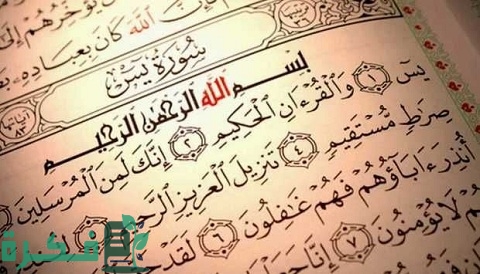 يُؤَخِّرُهُمْ إِلَىٰ
ٱللَّهَ كَانَ بِعِبَادِهِۦ
سُورَةُ يسٓ
آياتها ٨٣
بِسْمِ ٱللَّهِ ٱلرَّحْمَٰنِ ٱلرَّحِيمِ
يسٓ ١ وَٱلْقُرْءَانِ ٱلْحَكِيمِ ٢ إِنَّكَ لَمِنَ ٱلْمُرْسَلِينَ
صِرَٰطٍ مُّسْتَقِيمٍ ٤ تَنزِيلَ ٱلْعَزِيزِ ٱلرَّحِيمِ
أُنذِرَ ءَابَآؤُهُمْ فَهُمْ غَٰفِلُونَ ٦ لَقَدْ
لَا يُؤْمِنُونَ ٧ إِنَّا
فكرة